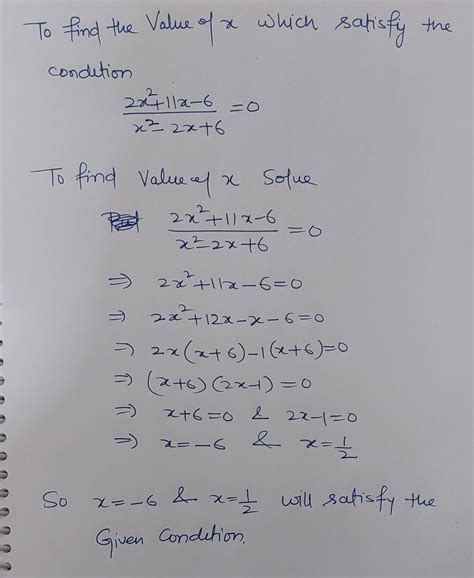 To find the Value of x which satisfy the
condition
2x²+11x-6 / x²-2x+6 = 0
To find Value of x Solve
2x²+11x-6 / x²-2x+6 = 0
⇒ 2x²+11x-6=0
⇒ 2x²+12x-x-6=0
⇒ 2x(x+6)-1(x+6)=0
⇒ (x+6)(2x-1)=0
⇒ x+6=0 & 2x-1=0
⇒ x=-6 & x=1/2
So x=-6 & x=1/2 will satisfy the
Given Condition.